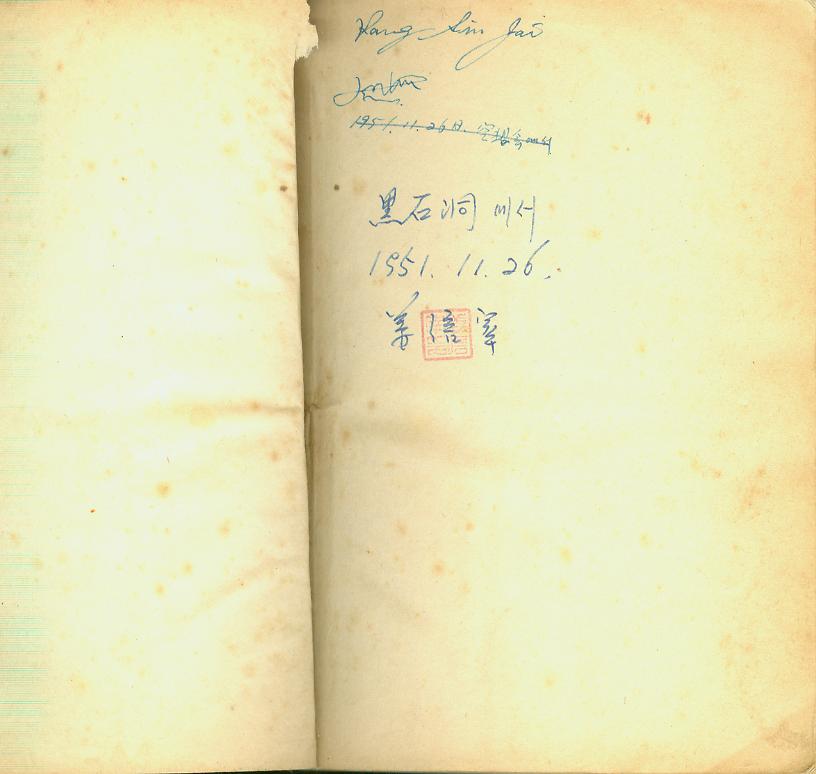 Kang Sin Jai
1951. 11. 26日. 空襲속에서
黑石洞에서
1951. 11. 26.
姜信宰